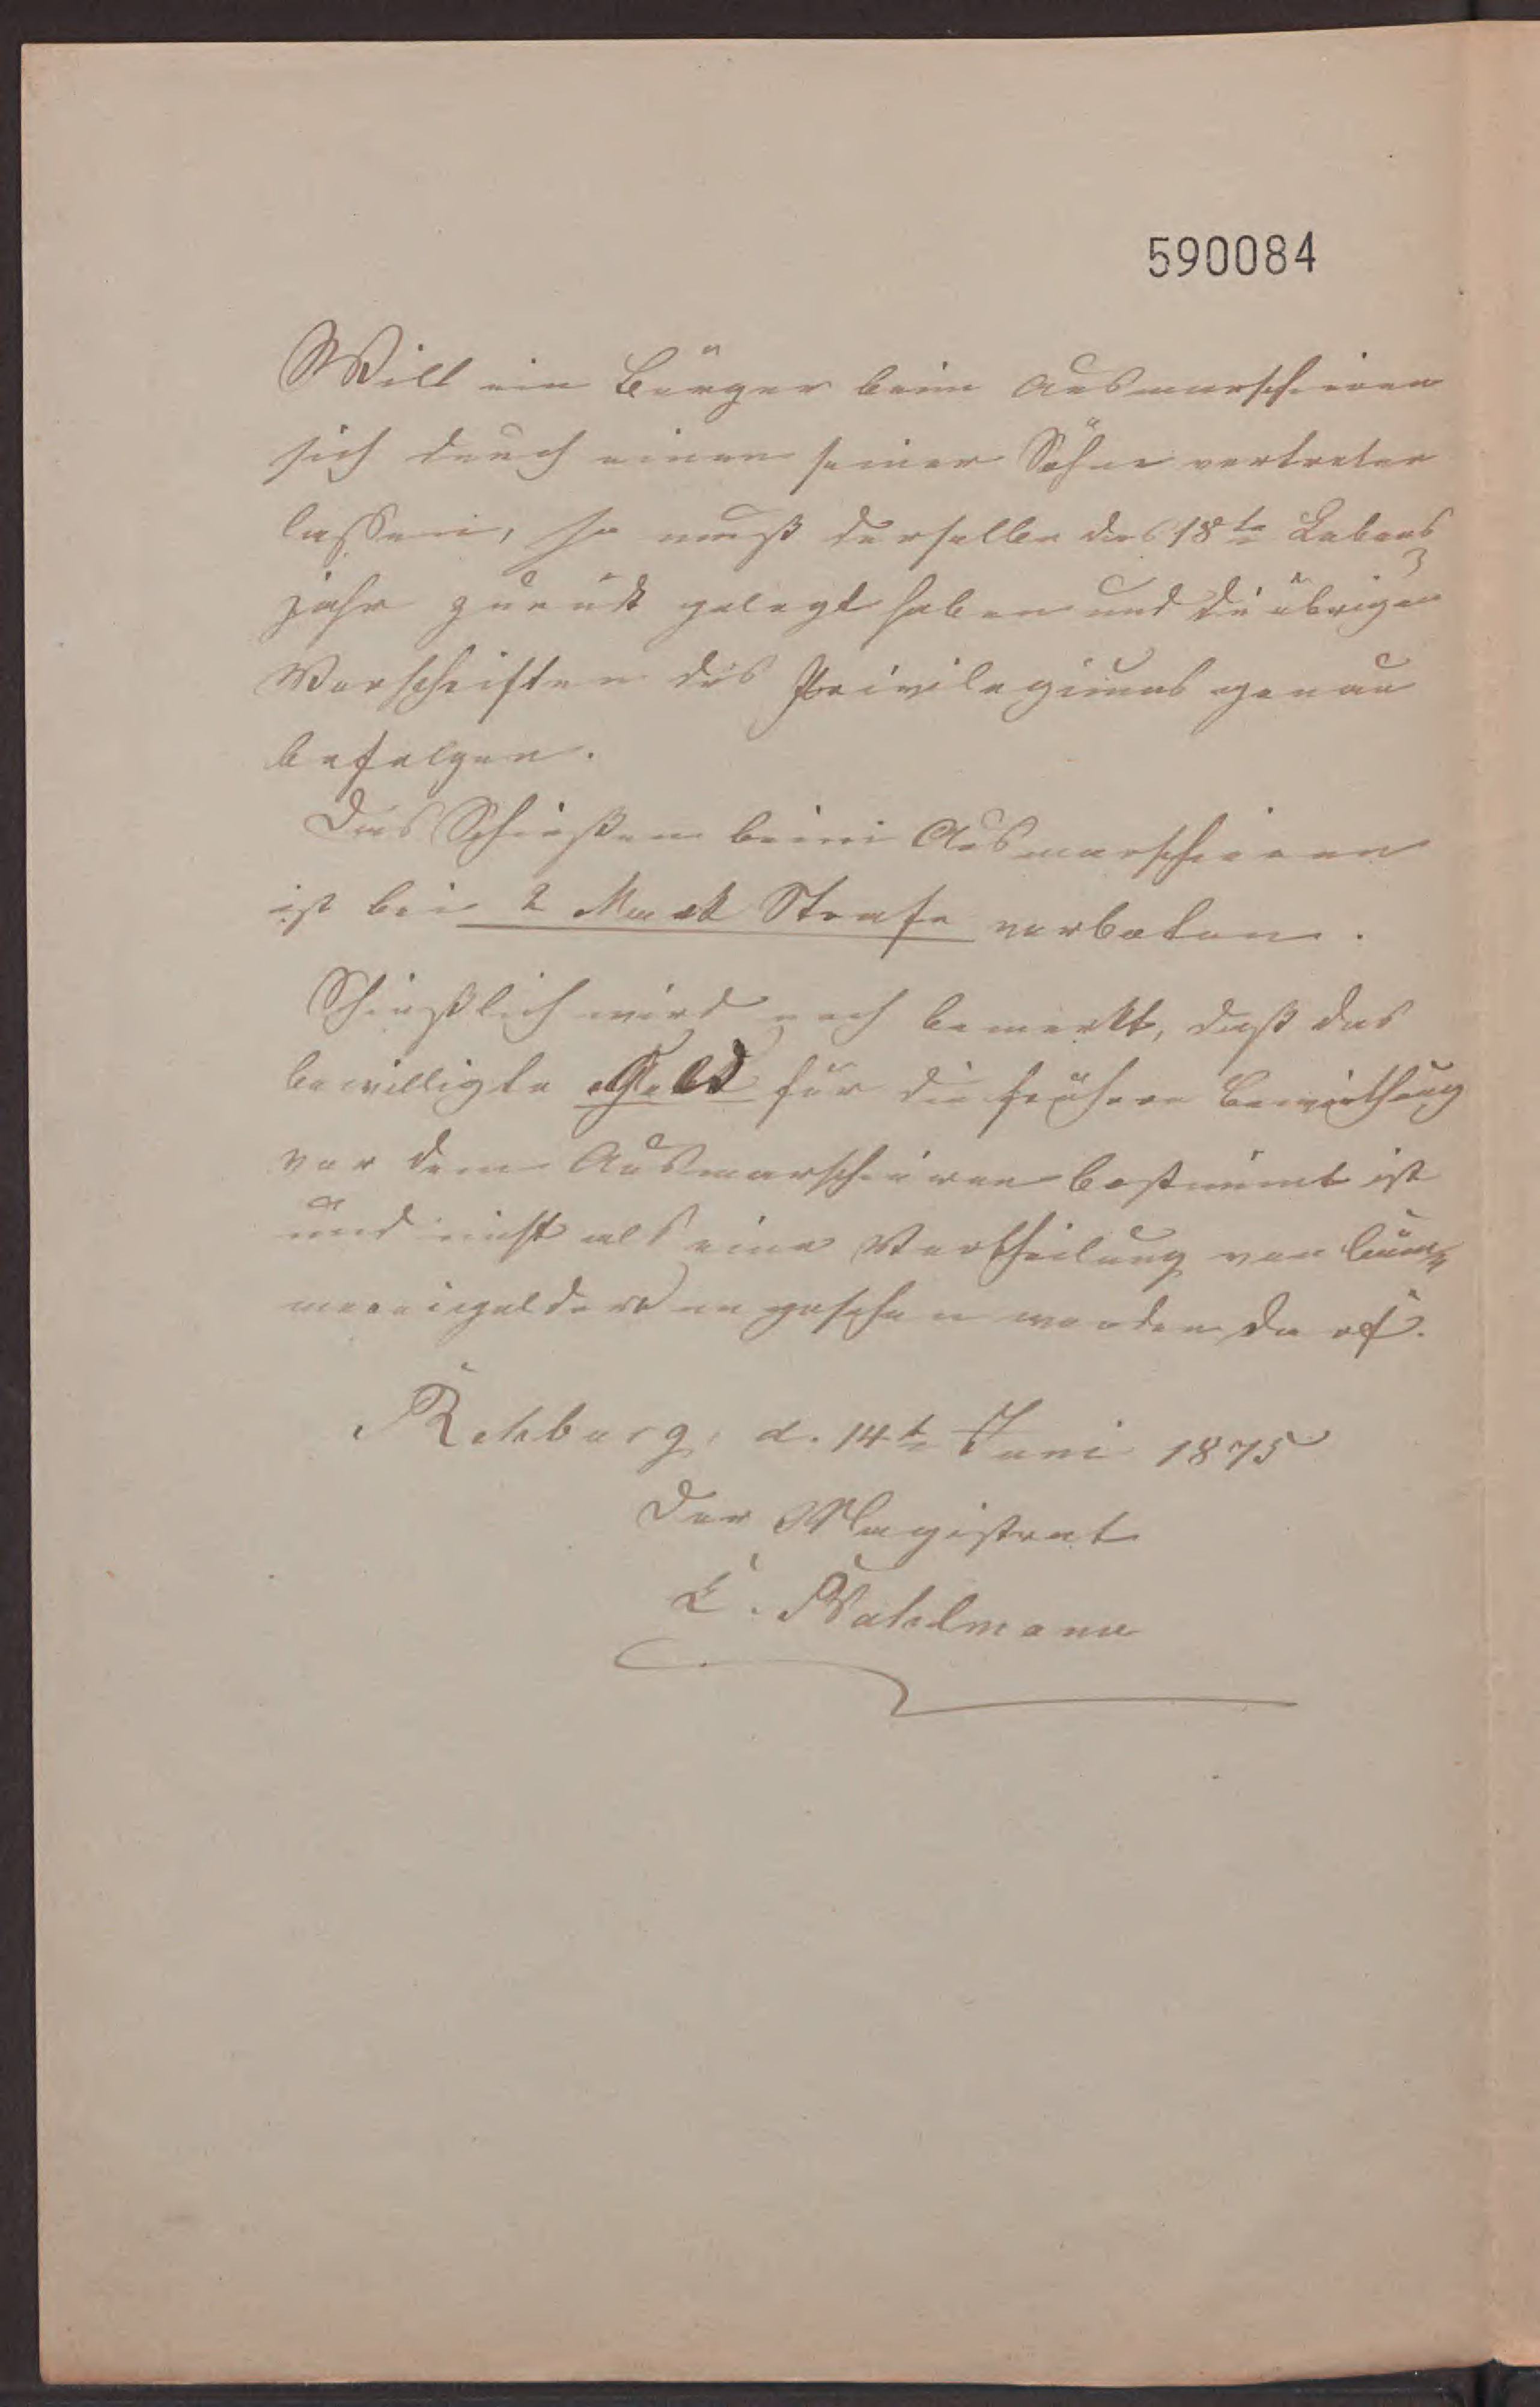 590084
Will ein Bürger beim Ausmarschiren
sich durch einen seiner Söhne vertreten
lassen, so muß derselbe das 18te Lebens
jahr zurück gelegt haben und die übrigen
Vorschriften des Privilegiums genau
befolgen.
Das Schießen beim Ausmarschieren
ist bei 2 Mark Strafe verboten.
Schießlich wird noch bemerkt, daß das
bewilligte Geld für die frühere Bewirthung
vor dem Ausmarschieren bestimmt ist
und nicht als eine Vertheilung von
angesehen werden darf.
Rehburg, d. 14t Juni 1875
Der Magistrat
E. Wahlmann